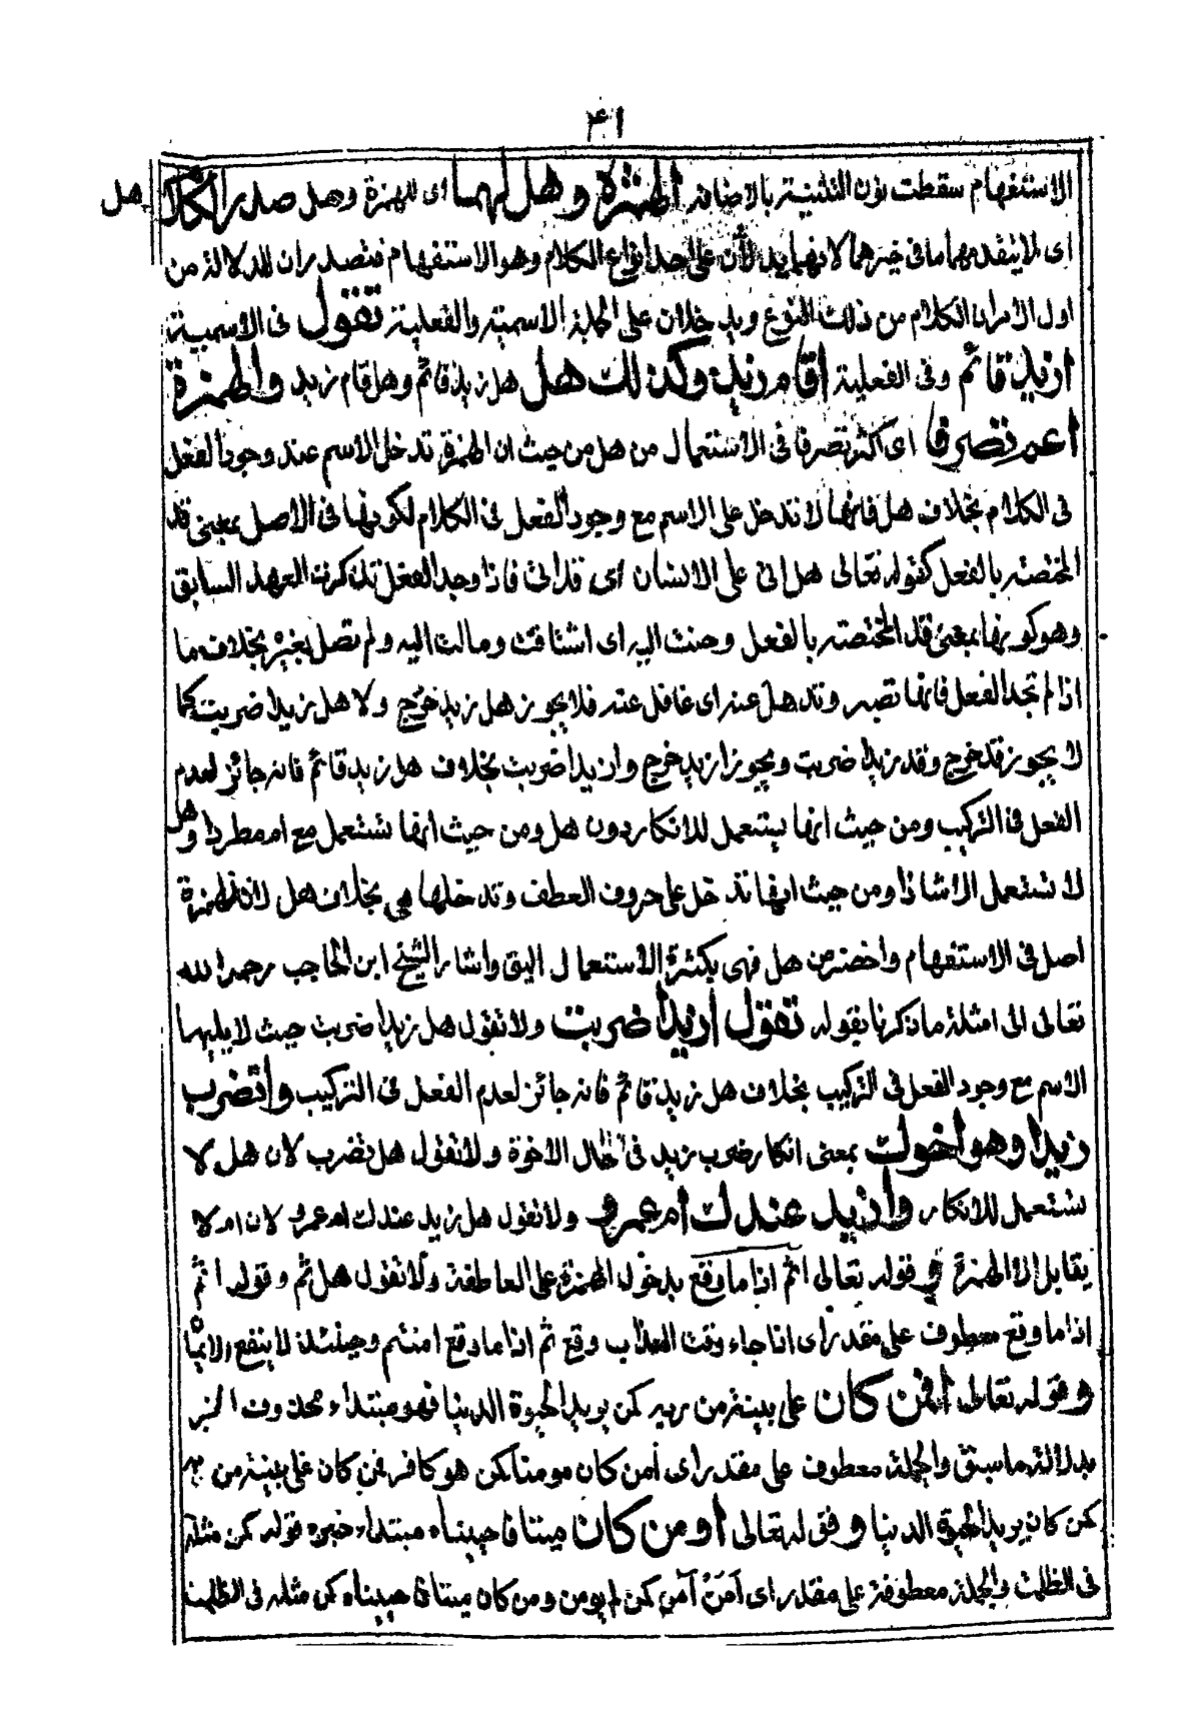 ٤١
الاستفهام سقطت نون التثنية بالاضافة الهمزة وهل لهما اى للهمزة وهل صدر الكلام
هل
اى لا يتقدمهما ما فى خبرهما لانهما يدلان على احد انواع الكلام وهو الاستفهام فتصدران للدلالة من
اول الامر ان الكلام من ذلك النوع ويدخلان على الجملة الاسمية والفعلية تقول فى الاسمية
ازيد قائم وفى الفعلية اقام زيد وكذلك هل هل زيد قائم وهل قام زيد والهمزة
اعم تصرفا اى اكثر تصرفا فى الاستعمال من هل من حيث ان الهمزة تدخل الاسم عند وجود الفعل
فى الكلام بخلاف هل فانها لا تدخل على الاسم مع وجود الفعل فى الكلام لكونها فى الاصل بمعنى قد
المختصة بالفعل كقوله تعالى هل اتى على الانسان اى قد اتى فاذا وجد الفعل تذكرت العهد السابق
وهو كونها بمعنى قد المختصة بالفعل وحنت اليه اى اشتاقت ومالت اليه ولم تصل بغيره بخلاف ما
اذا لم تجد الفعل فانها تصبر وتذهل عنه اى غافل عنه فلا يجوز هل زيد خرج ولا هل زيدا ضربت كما
لا يجوز قد خرج وقد زيدا ضربت ويجوز ازيد خرج وازيدا ضربت بخلاف هل زيد قائم فانه جائز لعدم
الفعل فى التركيب ومن حيث انها يستعمل للانكار دون هل ومن حيث انها تستعمل مع ام مطردا وهل
لا تستعمل الا شاذا ومن حيث انها تدخل على حروف العطف وتدخلها هى بخلاف هل لان الهمزة
اصل فى الاستفهام واخصر من هل فهى بكثرة الاستعمال اليق واشار الشيخ ابن الحاجب رحمه الله
تعالى الى امثلة ما ذكرنا بقوله تقول ازيدا ضربت ولا تقول هل زيدا ضربت حيث لا يليها
الاسم مع وجود الفعل فى التركيب بخلاف هل زيد قائم فانه جائز لعدم الفعل فى التركيب واتضرب
زيدا وهو اخوك بمعنى انكار ضرب زيد فى حال الاخوة ولا تقول هل تضرب لان هل لا
تستعمل للانكار وازيد عندك ام عمرو ولا تقول هل زيد عندك ام عمرو لان ام لا
يقابل الا الهمزة فى قوله تعالى اثم اذا ما وقع بدخول الهمزة على العاطفة ولا تقول هل ثم وقوله اثم
اذا ما وقع معطوف على مقدر اى اذا جاء وقت العذاب وقع ثم اذا ما وقع امنتم وحينئذ لا ينفع الايمان
وقوله تعالى افمن كان على بينة من ربه كمن يريد الحيوة الدنيا فهو مبتداء محذوف الخبر
بدلالة ما سبق والجملة معطوف على مقدر اى أمن كان مومنا كمن هو كافر فمن كان على بينة من ربه
كمن كان يريد الحيوة الدنيا وقوله تعالى اومن كان ميتا فاحييناه مبتداء خبره قوله كمن مثله
فى الظلمت والجملة معطوفة على مقدر اى أمن آمن كمن لم يومن ومن كان ميتا فاحييناه كمن مثله فى الظلمت